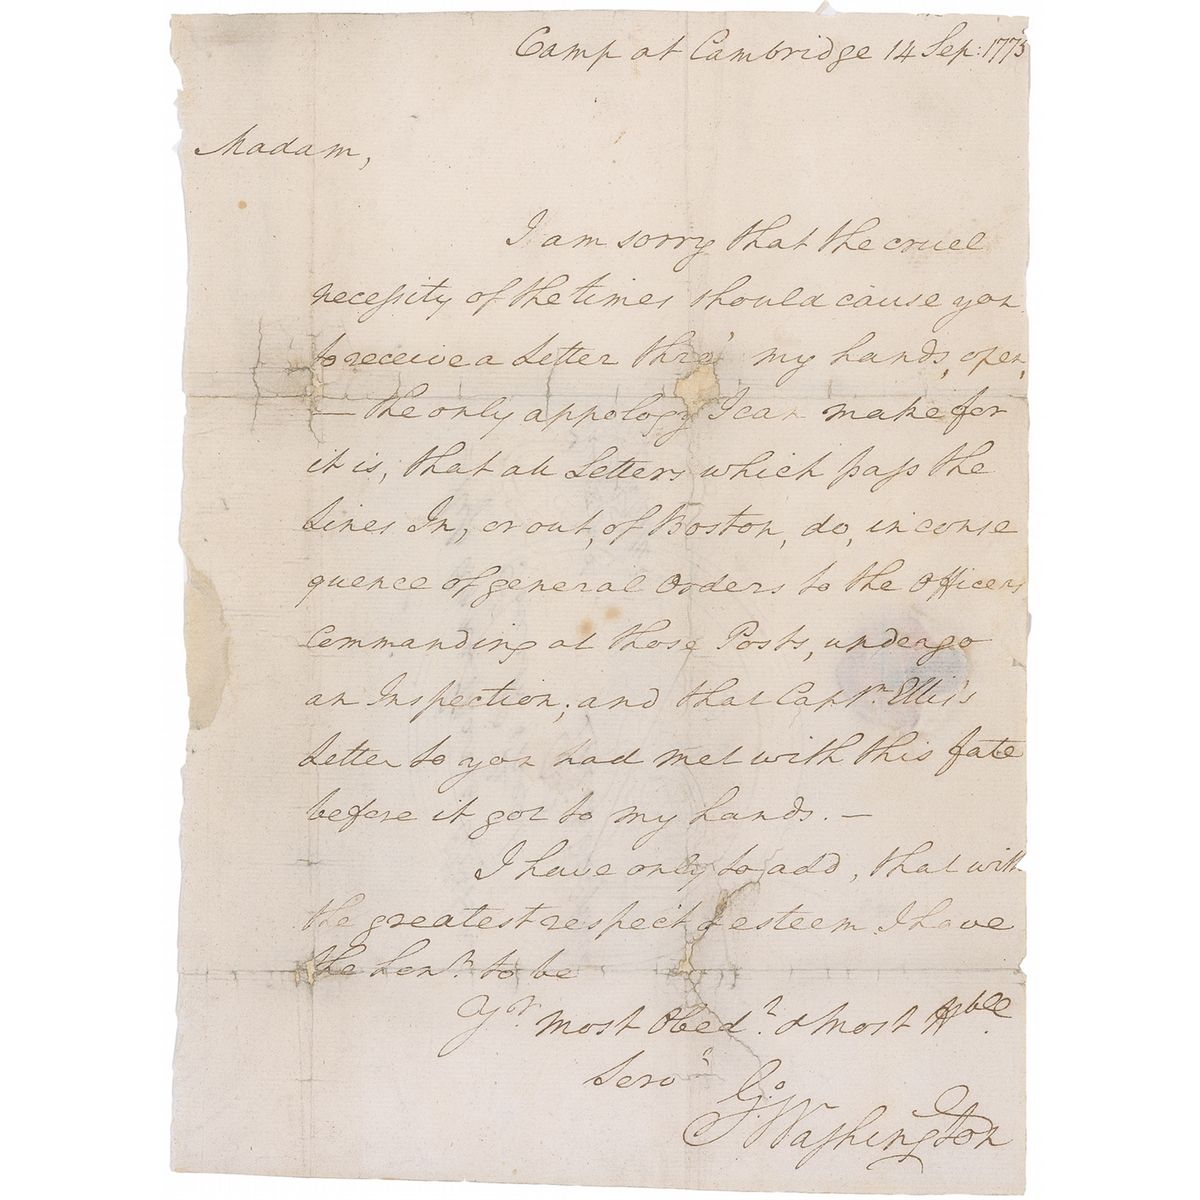 Camp at Cambridge 14 Sep: 1775
Madam,
I am sorry that the cruel
necessity of the times should cause you
to receive a Letter thro' my hands, open,
— the only appology I can make for
it is, that all Letters which pass the
Lines In, or out, of Boston, do, in conse
quence of general Orders to the Officers
Commanding at those Posts, undergo
an Inspection; and that Captn. Ellis's
Letter to you had met with this fate
before it got to my hands. —
I have only to add, that with
the greatest respect & esteem I have
the honr. to be
Yr. most Obedt. & most Hble
Servt.
Go: Washington